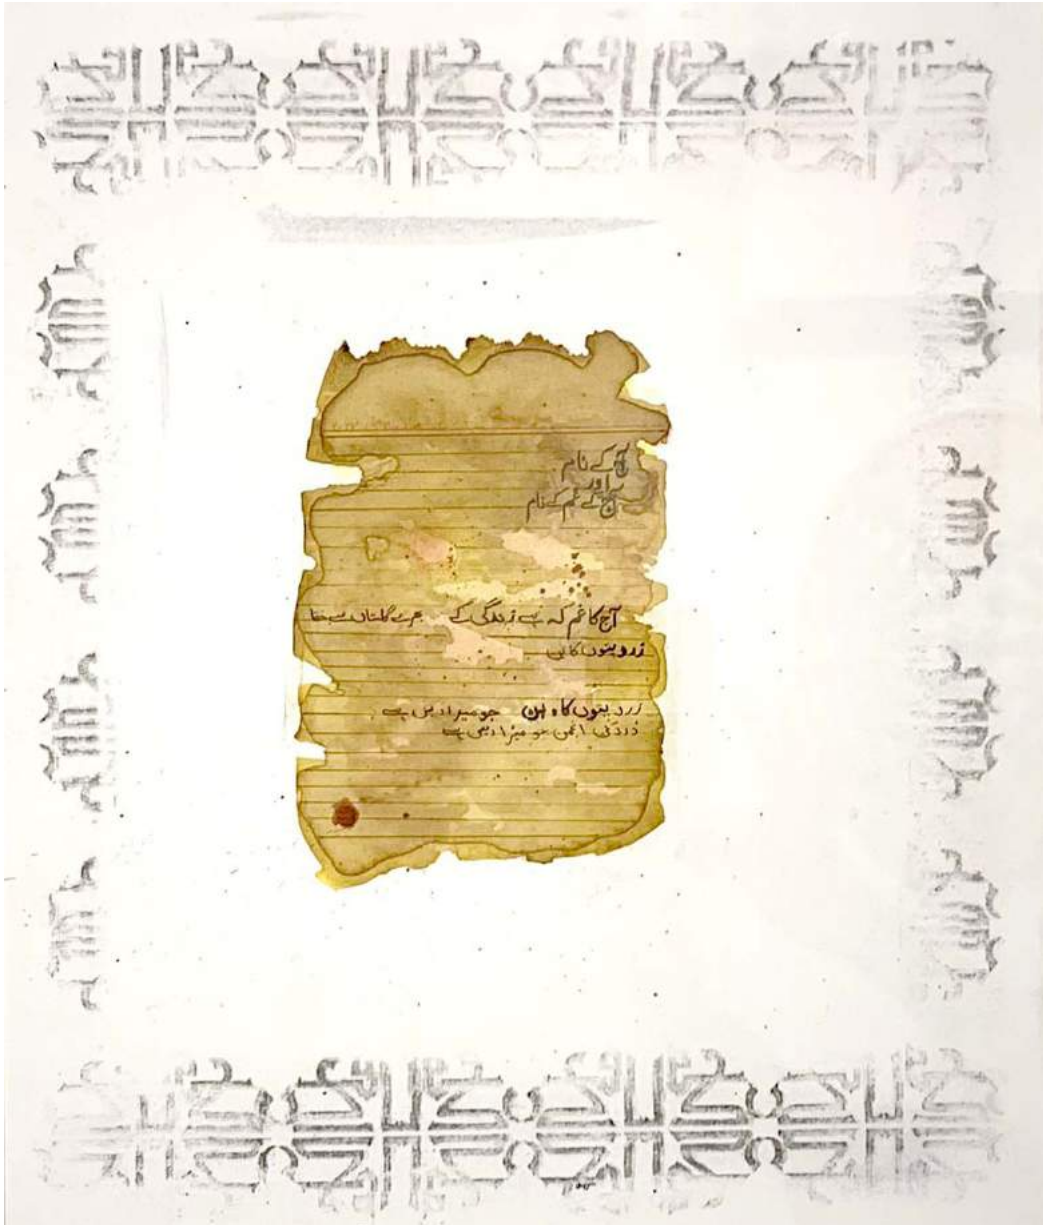 آج کے نام
اور
آج کے غم کے نام
آج کا غم کہ ہے زندگی کے بھرے گلستاں سے خفا
زرد پتوں کا بن
زرد پتوں کا بن جو میرا دیس ہے
درد کی انجمن جو میرا دیس ہے